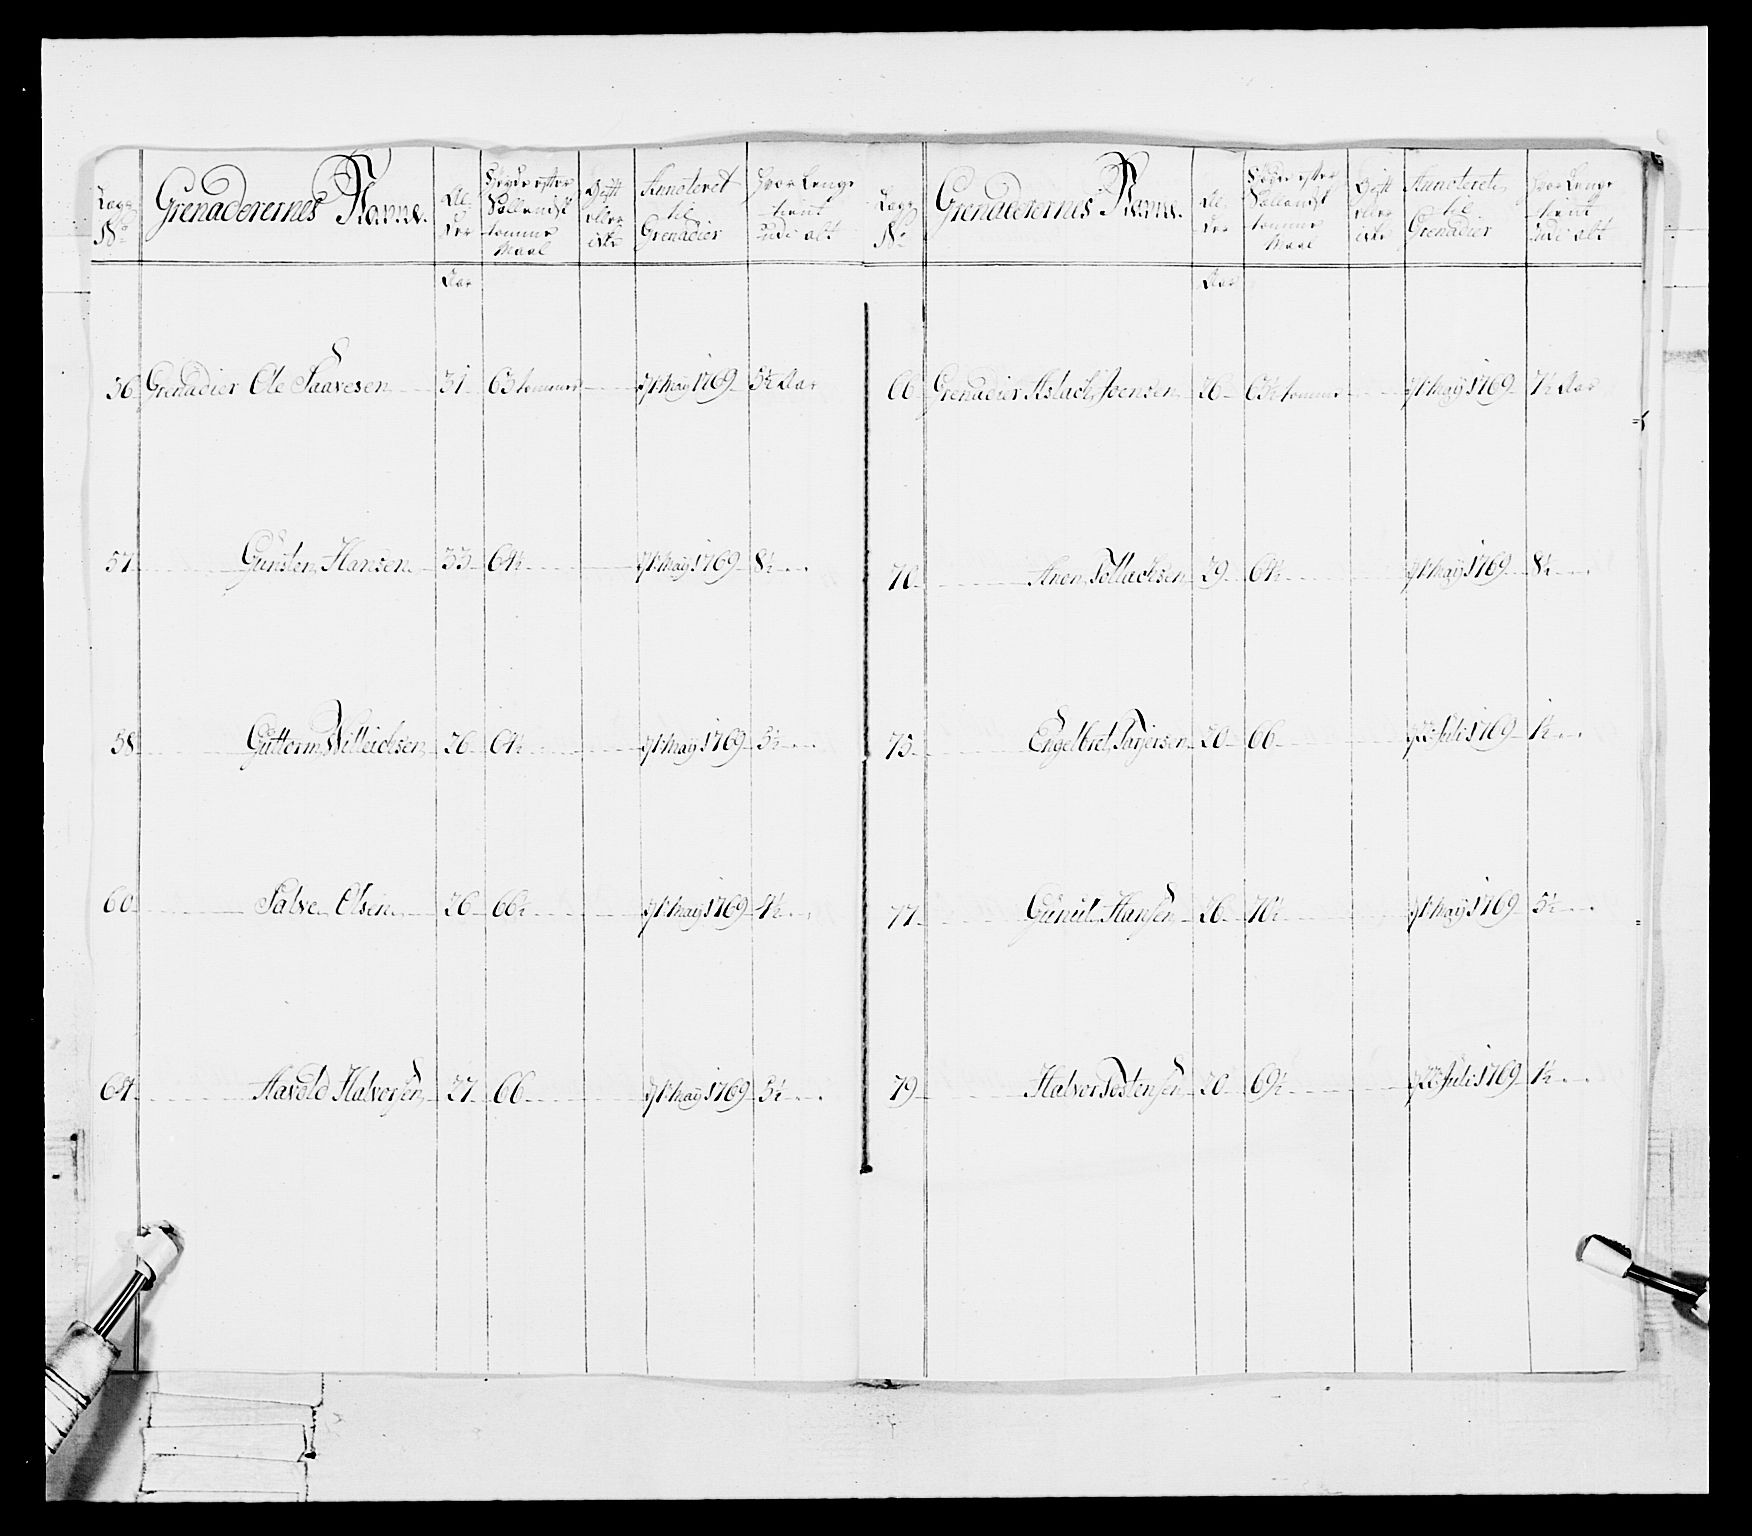 Lægs No Grenaderernes Nafne. Al-der Høyde efter Sællandsk tomme Maal Gift eller eike Annoteret til Grenadier Hvor Længe tient udi alt
Aar
56 Grenadier Ole Saavesen 31 65 tommer 7 May 1769 5½ Aar
57 Gunsten Hansen 33 64½ 7 May 1769 8½
58 Guttorm Willeichsen 26 64½ 7 May 1769 5½
60 Salve Olsen 26 66½ 7 May 1769 4½
64 Havold Halvorsen 27 66 7 May 1769 5½
Lægs No Grenaderernes Nafne. Al-der Høyde efter Sællandsk tomme Maal Gift eller eike Annoteret til Grenadier Hvor Længe tient udi alt
Aar
66 Grenadier Aslach Joensen 26 65½ tommer 7 May 1769 7½ Aar
70 Aven Tollachsen 29 64½ 7 May 1769 8½
75 Engelbret Tarjersen 20 66 Juli 1769 1½
77 Gunuld Hansen 26 70½ 7 May 1769 5½
79 Halvor Tostensen 20 69½ Juli 1769 1½